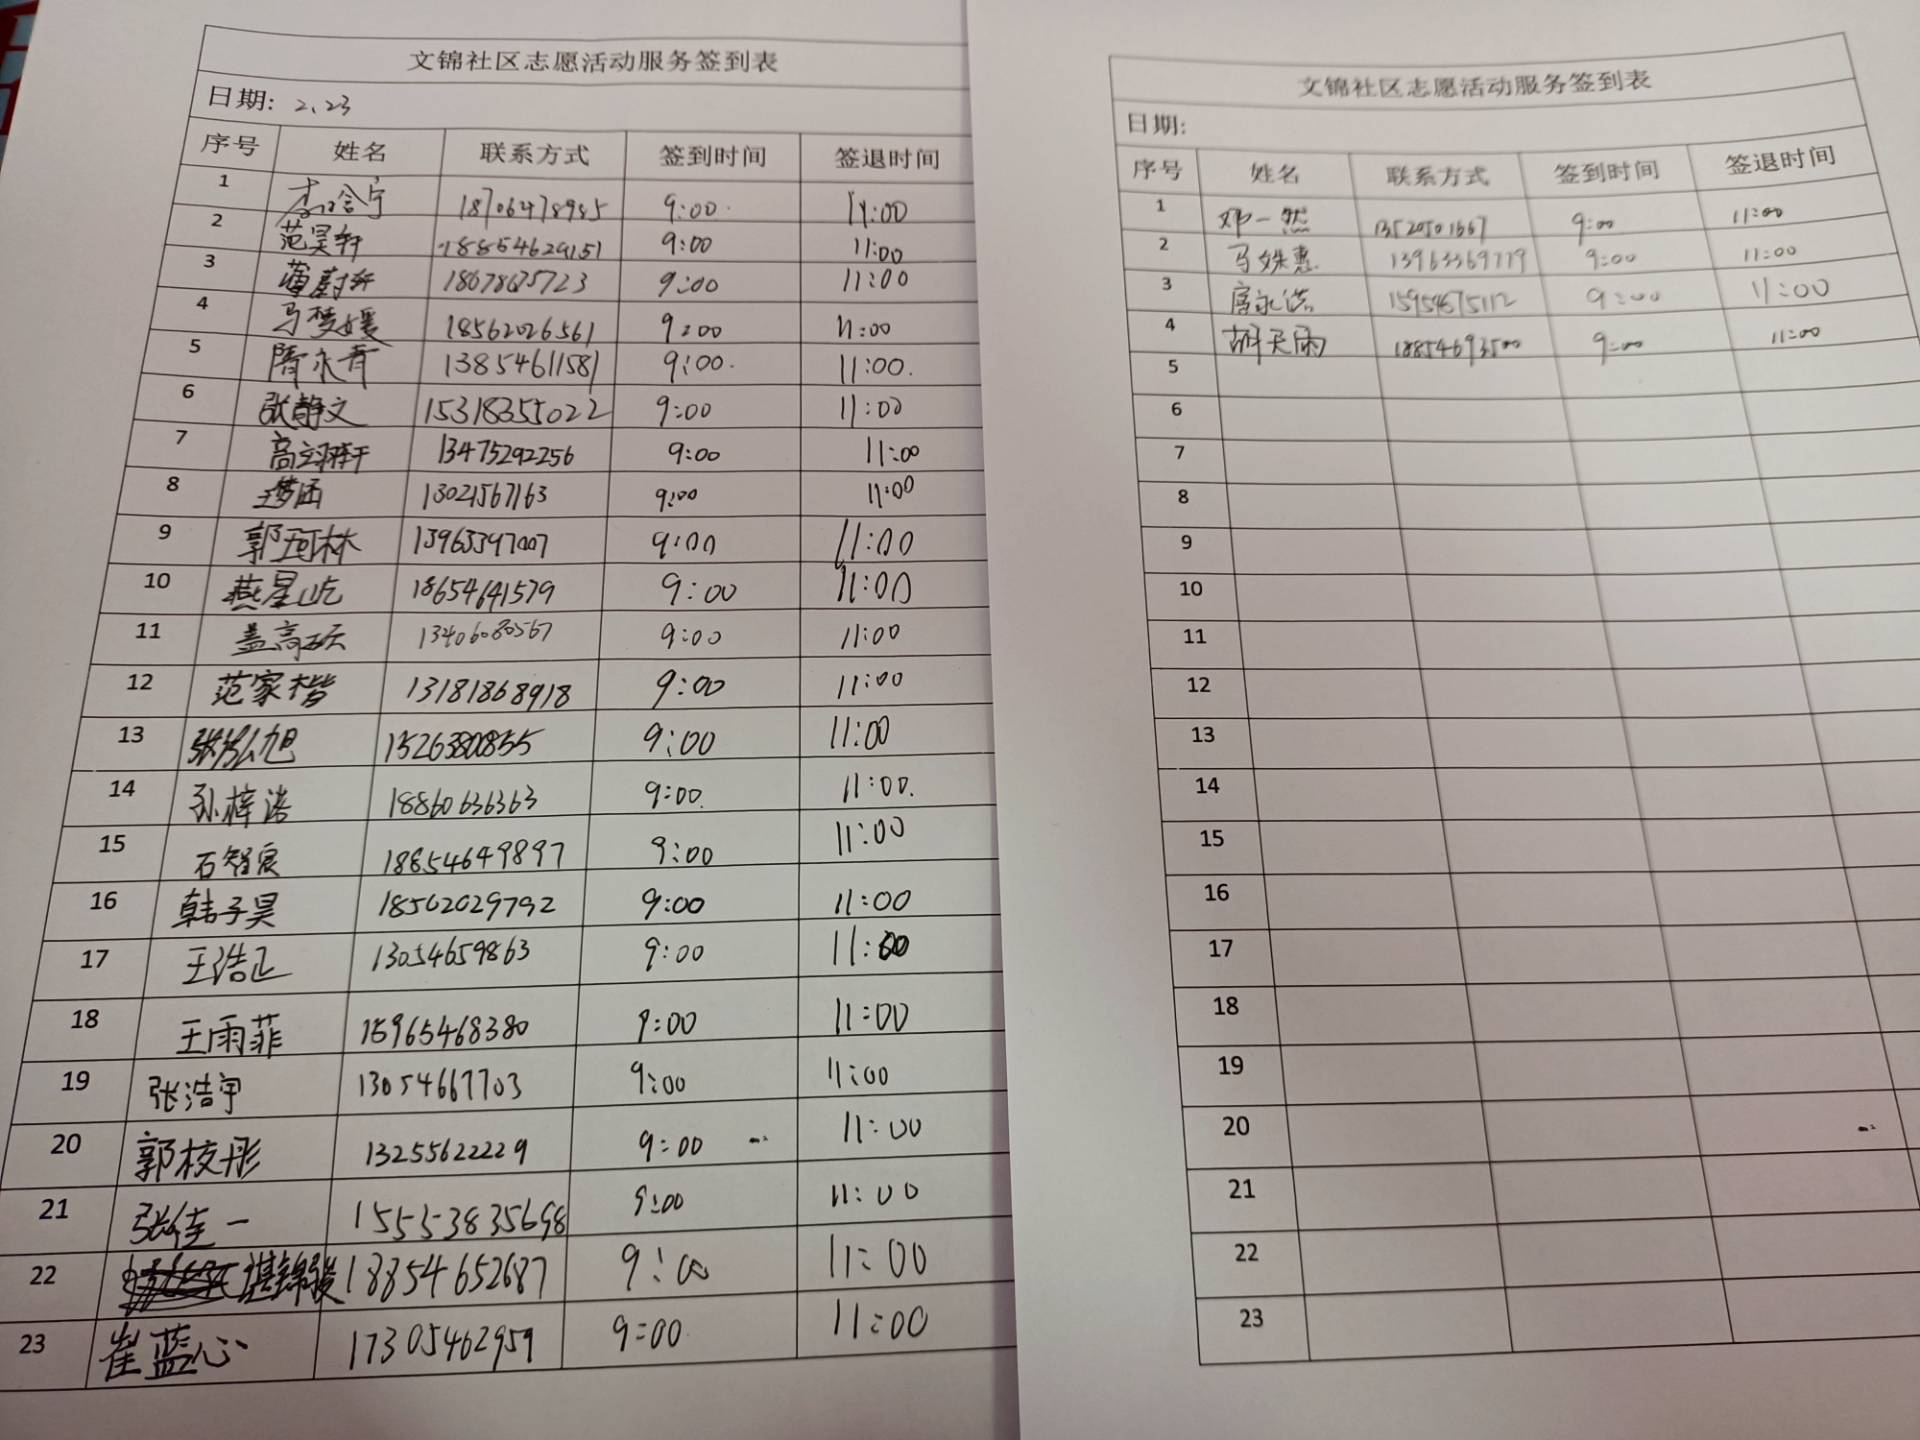 文锦社区志愿活动服务签到表
日期: 2、23
序号 姓名 联系方式 签到时间 签退时间
1 18706478985 9:00 11:00
2 范昊轩 18854629151 9:00 11:00
3 18678675723 9:00 11:00
4 马梦媛 18562026561 9:00 11:00
5 隋永青 13854611581 9:00 11:00
6 张静文 15318355022 9:00 11:00
7 高翊轩 13475292256 9:00 11:00
8 王梦函 13021567163 9:00 11:00
9 郭珂林 9:00 11:00
10 燕星屹 18654641579 9:00 11:00
11 盖高砾 13406080567 9:00 11:00
12 范家楷 13181868918 9:00 11:00
13 张弘旭 15263380855 9:00 11:00
14 孙梓浩 18860636363 9:00 11:00
15 石智宸 18854649897 9:00 11:00
16 韩子昊 18562029792 9:00 11:00
17 王浩正 13054659863 9:00 11:00
18 王雨菲 15965468380 9:00 11:00
19 张浩宇 13054667703 9:00 11:00
20 郭枝彤 13255622229 9:00 11:00
21 张佳一 15553835698 9:00 11:00
22 18854652687 9:00 11:00
23 崔蓝心 17305462959 9:00 11:00
文锦社区志愿活动服务签到表
日期:
序号 姓名 联系方式 签到时间 签退时间
1 邓一然 13520501667 9:00 11:00
2 马姝惠 13963369779 9:00 11:00
3 15954675112 9:00 11:00
4 胡天雨 18854693500 9:00 11:00
5
6
7
8
9
10
11
12
13
14
15
16
17
18
19
20
21
22
23